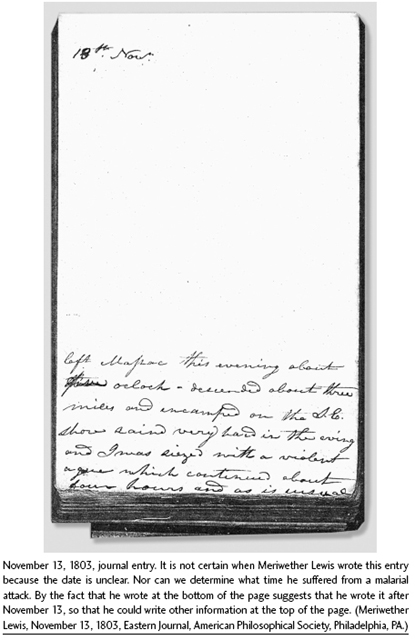 13th. Nov.
left Massac this evening about
five oclock - descended about three
miles and encamped on the S.E.
shore raind very hard in the eving
and I was siezed with a violent
ague which continued about
four hours and as is usual
November 13, 1803, journal entry. It is not certain when Meriwether Lewis wrote this entry
because the date is unclear. Nor can we determine what time he suffered from a malarial
attack. By the fact that he wrote at the bottom of the page suggests that he wrote it after
November 13, so that he could write other information at the top of the page. (Meriwether
Lewis, November 13, 1803, Eastern Journal, American Philosophical Society, Philadelphia, PA.)